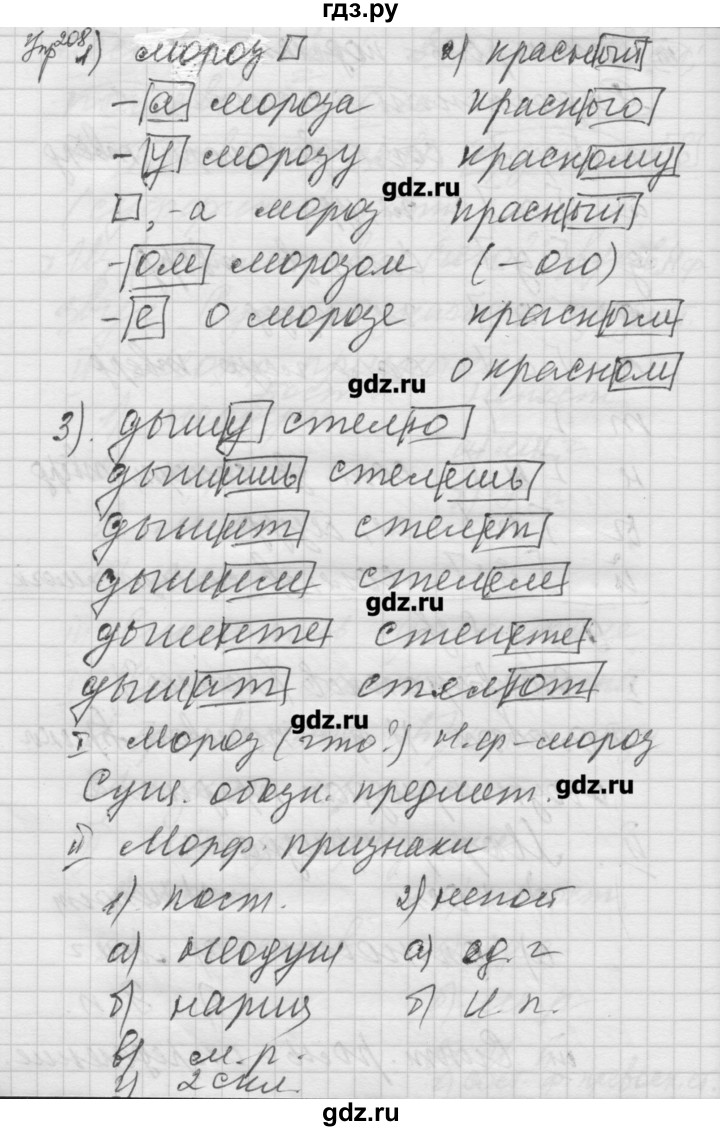 гдз.ру
Упр 208
1) мороз 2) красный
-а мороза красного
-у морозу красному
gdz.ru
, -а мороз красный
-ом морозом (-ого)
-е о морозе красным
gdz.ru
о красном
3). дышу стелю
дышишь стелешь
дышит стелет
дышим стелем
gdz.ru
дышите стелете
дышат стелют
gdz.ru
I Мороз (что?) Н.ф-мороз
gdz.ru
Сущ. обозн. предмет.
II Морф. признаки
1) пост. 2) непост
а) неодуш а) ед. ч
б) нариц б) И.п.
в) м.р.
г) 2 скл.
gdz.ru